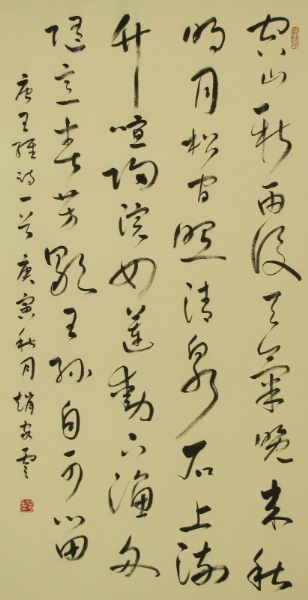 空山新雨後天氣晚來秋
明月松間照清泉石上流
竹喧歸浣女蓮動下漁舟
隨意春芳歇王孫自可留
唐王維詩一首庚寅秋月趙雲